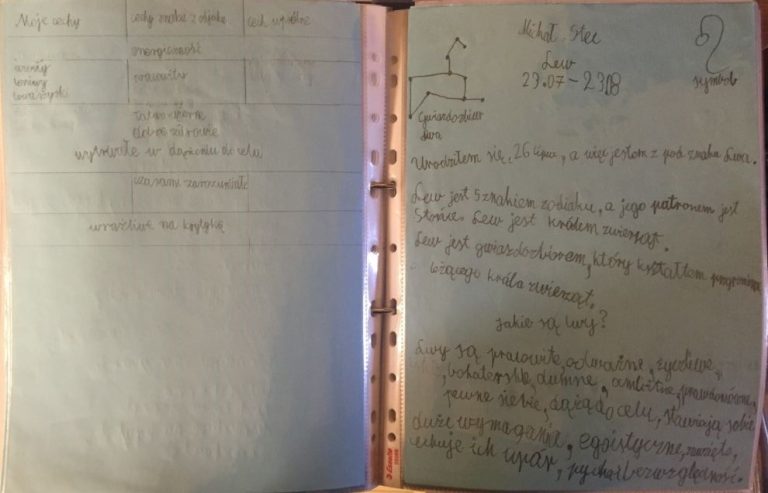 Moje cechy
cechy znaku z
cech wspólne
energiczność
leniwy
towarzyski
pracowity
dobre zdrowie
wytrwałe w dążeniu do celu
czasami zarozumiałe
wrażliwe na krytykę
Michał Stec
Lew
23.07 - 23.08
symbol
Gwiazdozbiór
lwa
Urodziłem się, 26 lipca, a więc jestem z pod znaku Lwa.
Lew jest 5 znakiem zodiaku, a jego patronem jest
Słońce. Lew jest królem zwierząt.
Lew jest gwiazdozbiorem, który kształtem przypomina
leżącego króla zwierząt.
Jakie są lwy?
Lwy są pracowite, odważne, życzliwe,
bohaterskie, dumne, ambitne, prawdomówne,
pewne siebie, dążą do celu, stawiają sobie
duże wymagania, egoistyczne, zawzięte,
cechuje ich upór, pycha i bezwzględność.